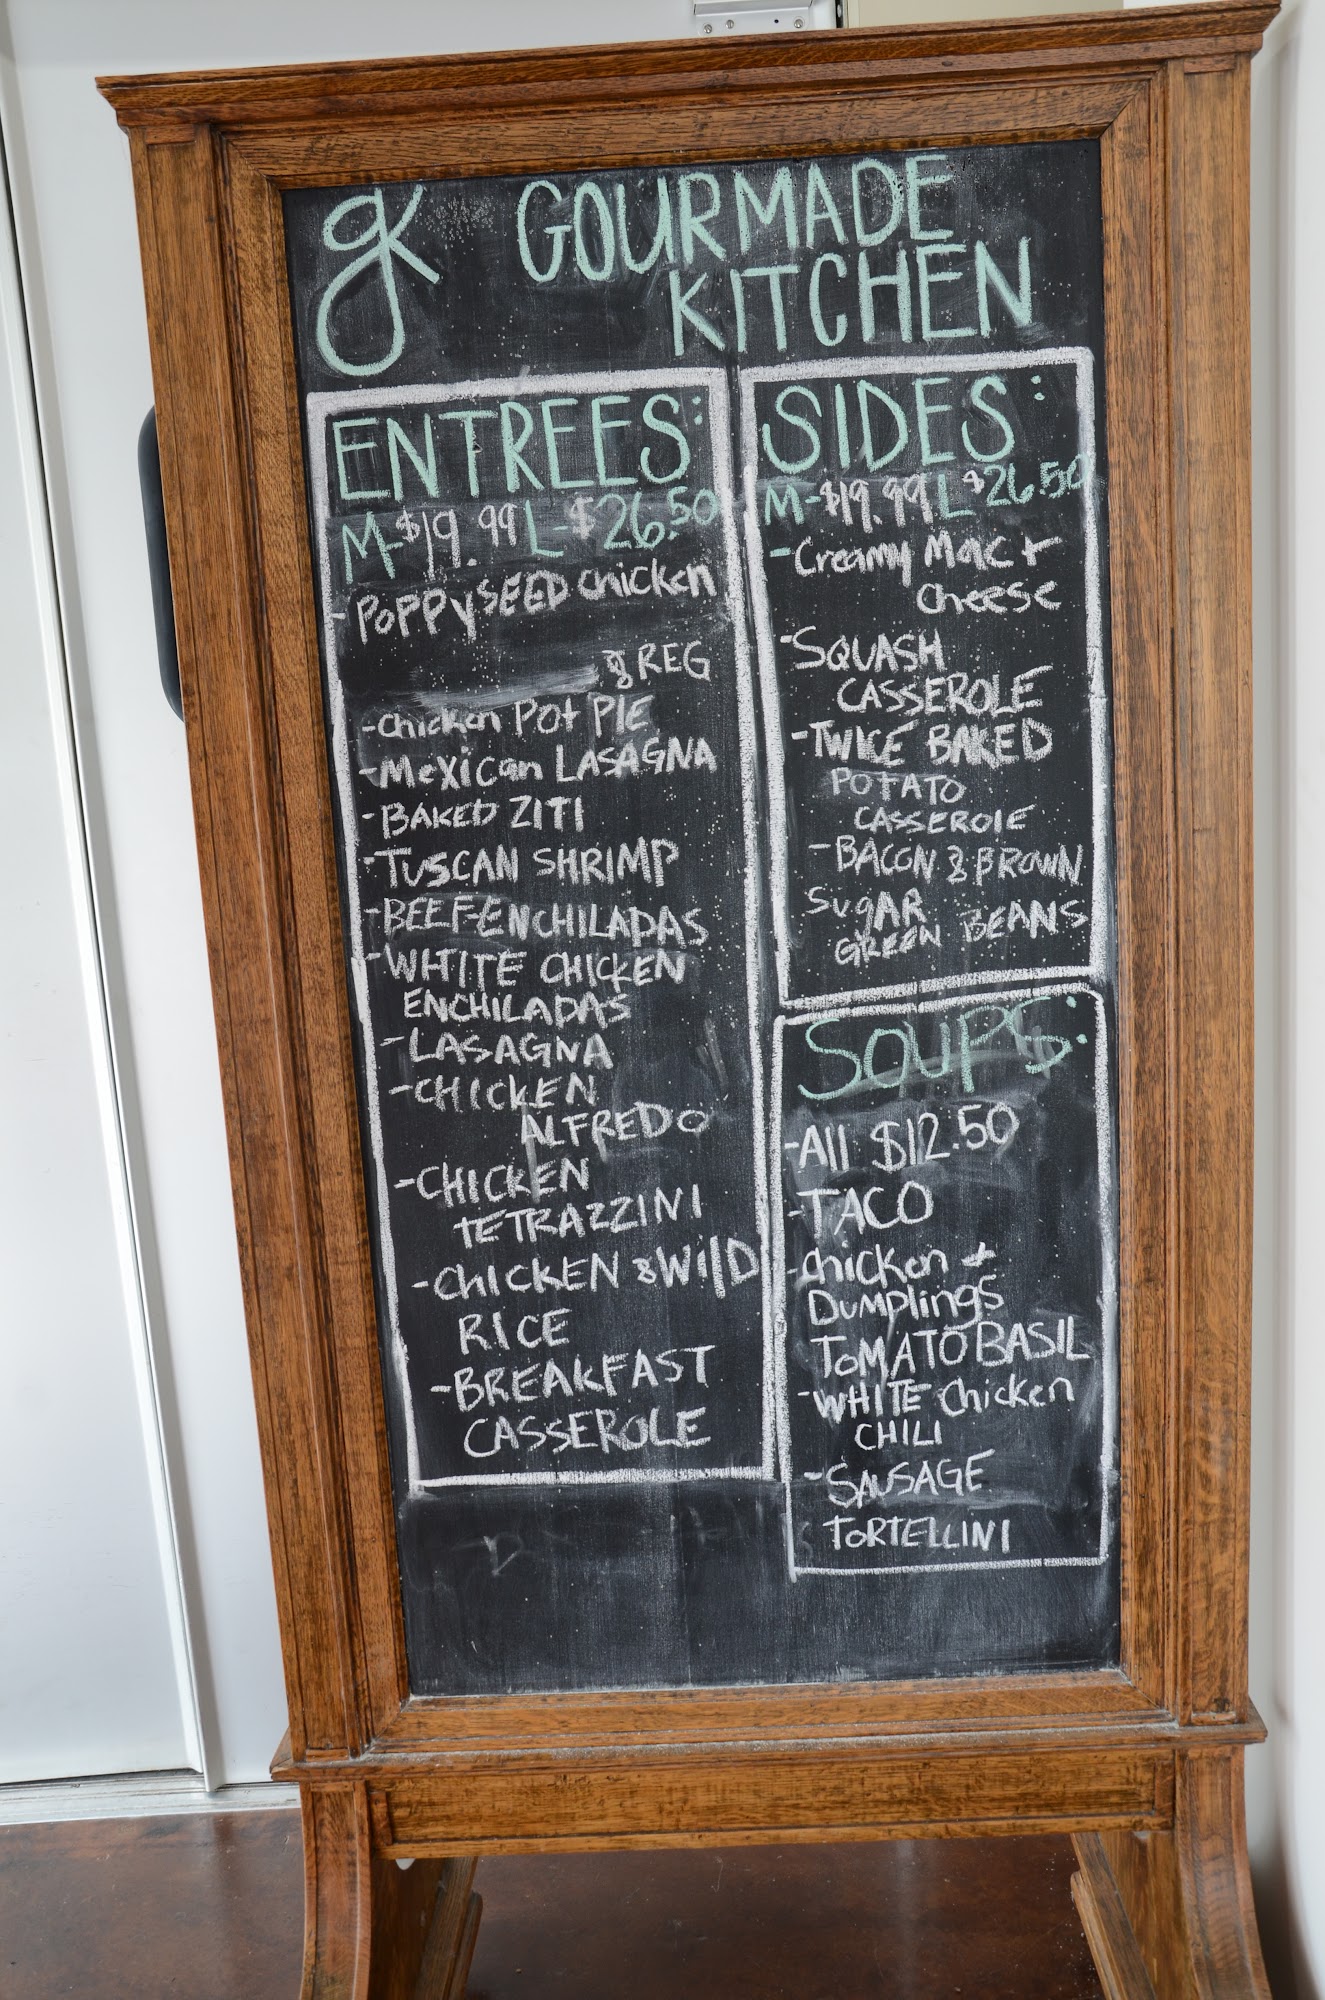 gk GOURMADE
KITCHEN
ENTREES:
M-$19.99 L-$26.50
- POPPYSEED chicken
& REG
-chicken Pot PIE
-Mexican LASAGNA
-BAKED ZITI
-TUSCAN SHRIMP
-BEEF ENCHILADAS
-WHITE CHICKEN
ENCHILADAS
-LASAGNA
-CHICKEN
ALFREDO
-CHICKEN
TETRAZZINI
-CHICKEN & WIlD
RICE
-BREAKFAST
CASSEROLE
SIDES:
M-$19.99 L $26.50
-Creamy Mac +
cheese
-SQUASH
CASSEROLE
-TWICE BAKED
POTATO
CASSEROlE
-BACON & BROWN
SugAR
GREEN BEANS
SOUPS:
-All $12.50
-TACO
-chicken +
Dumplings
TOMATO BASIL
-WHITE Chicken
CHILI
-SAUSAGE
TORTELLINI